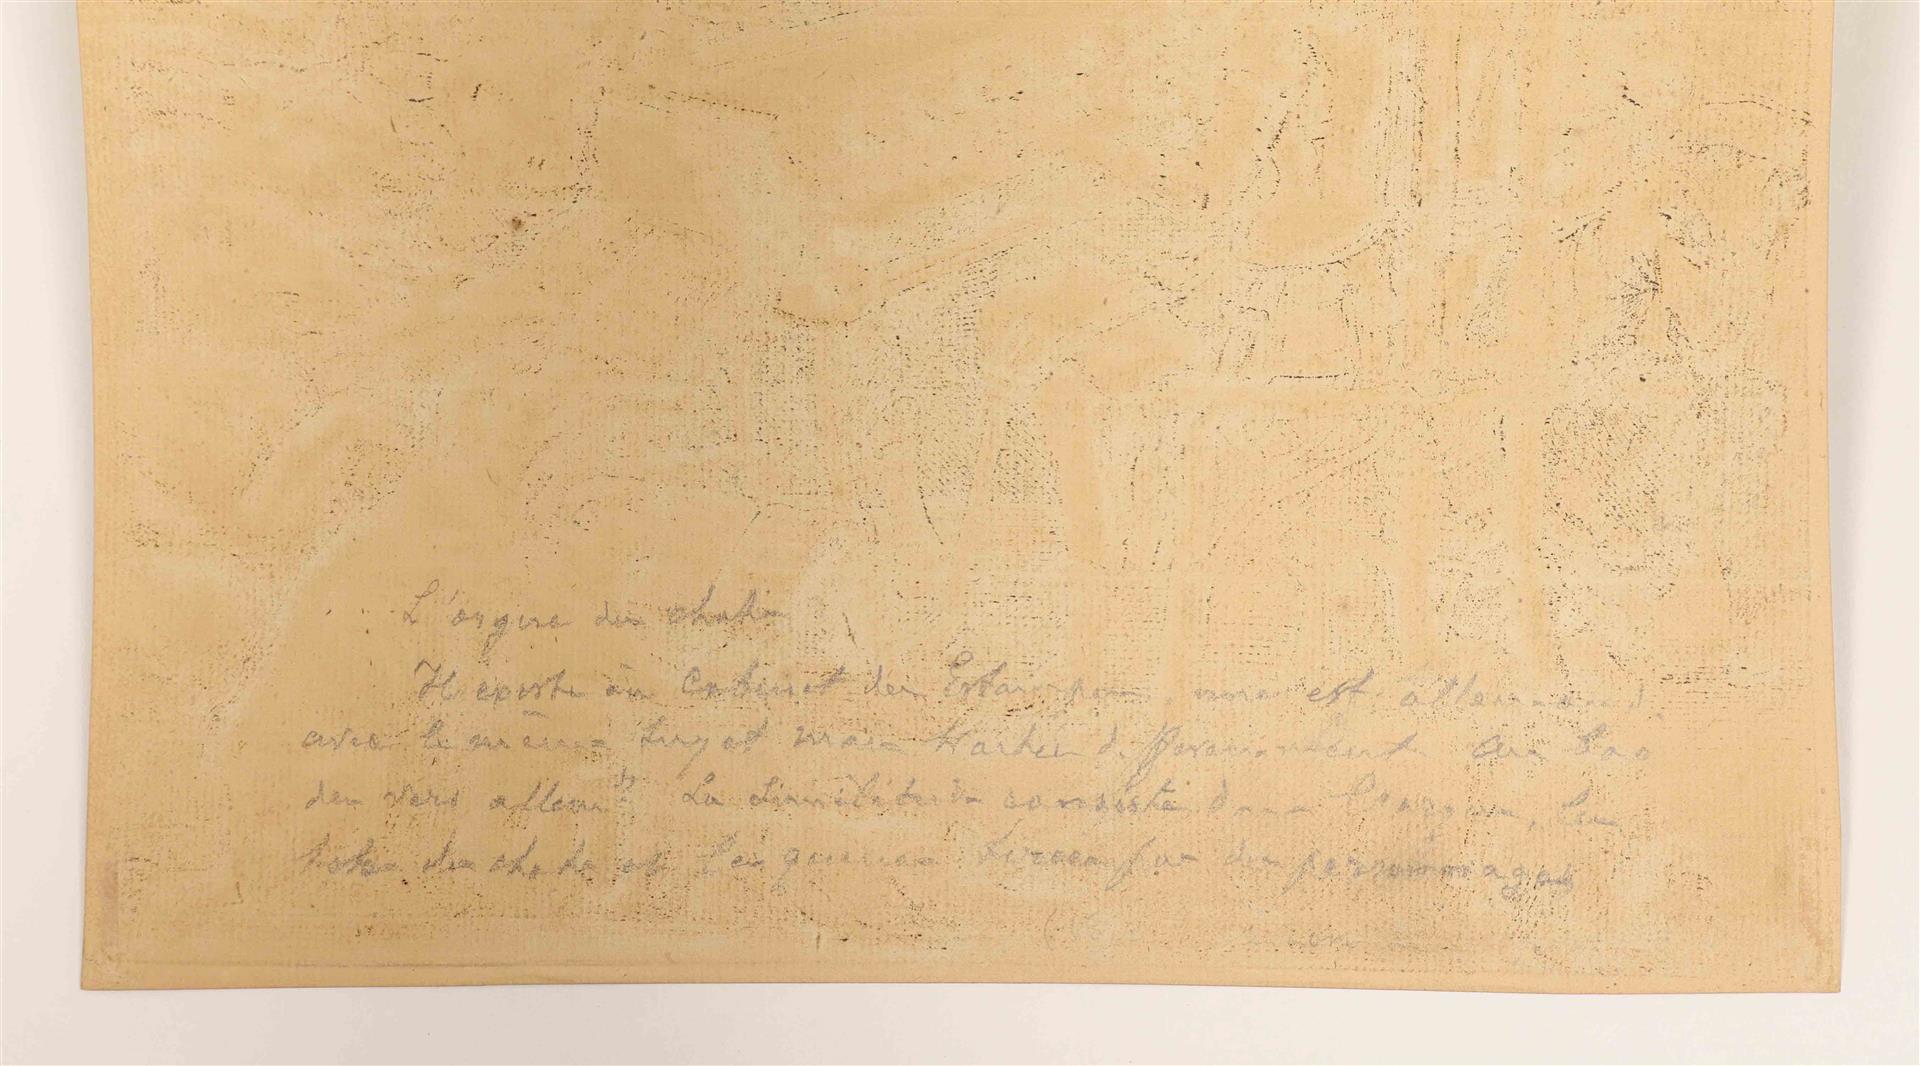 L'orgue des chats
Il existe au Cabinet des Estampes une est. allemand
avec le même sujet mais traité différemment au bas
des vers allem ds La similitude consiste dans l'orgue, les
têtes des chats et les queues tirées par des personnages